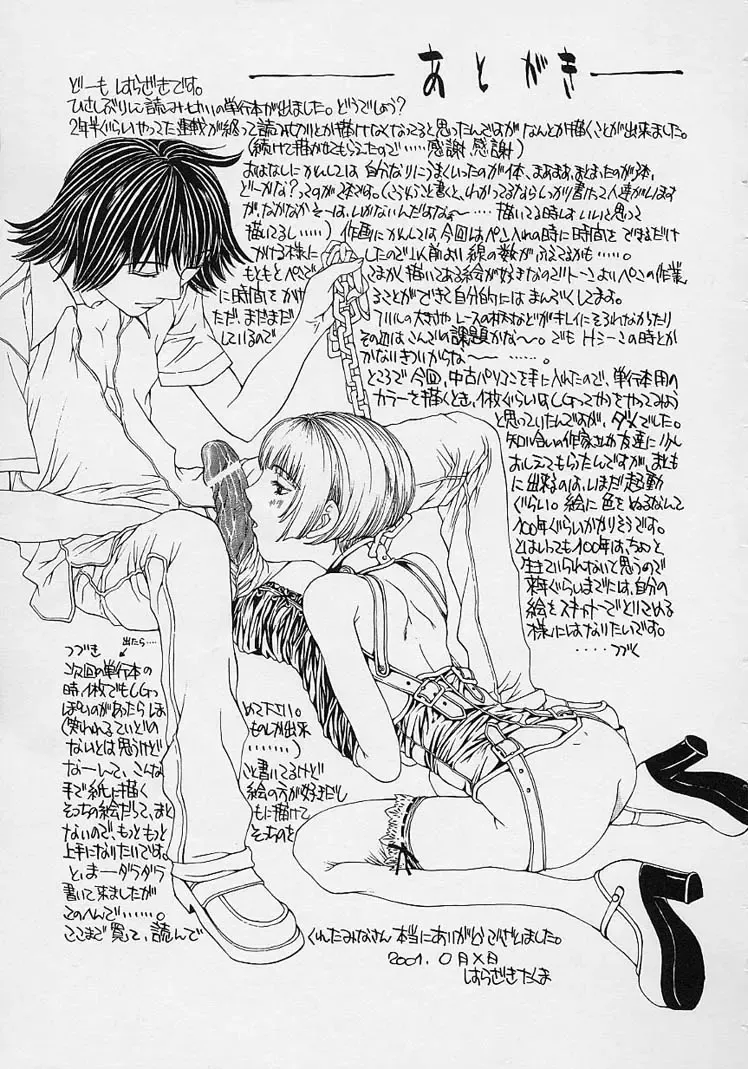 あとがき
どーも はらざきです。
ひさしぶりに読みせいの単行本が出ました。どうでしょう？
2年半ぐらいやってた連載が終って読み切りとか描けなくなってると思ったんですがなんとか描くことが出来ました。
(続けて描かせてもらえたので……感謝、感謝)
おはなしにかんしては 自分なりにうまくいったのが1本、まあまあ、まとまったのが3本、
どーかな？ってのが
が、なかなかそーは、いかないんだよなぁ〜……描いてる時はいいと思って
描いてるし……) 作画にかんしては 今回はペン入れの時に時間を できるだけ
かける様に したので以前より 線の数が ふえてるかも……。
もともとペンで こまかく描いてある絵が好きなのでトーンよりペンの作業
に時間をかけ ることができて自分的には まんぞくしてます。
ただ、まだまだ フリルの大きさや レースの
しているので その辺はこんごの課題かな〜。でも Hシーンの時とか
かなりきついからな〜……。
ところで今回、中古パソコンを手に入れたので、単行本用の
カラーを描くとき、1枚ぐらいはCGってやつをやってみよう
と思っていたんですが、ダメでした。
知り合いの作家さんや友達に少し
おしえてもらったんですが、まとも
に出来るのは、いまだ起動
ぐらい。絵に色をぬるなんて
100年ぐらいかかりそうです。
とはいっても100年は、ちょっと
生きていられないと思うので
来年ぐらいまでには、自分の
絵をスキャナーでとりこめる
様にはなりたいです。
……つづく
つづき
出たら……
次回の単行本の
時1枚でもCGっ
ぽいのがあったらほ めて下さい。
(笑われるていどの ものしか出来
ないとは思うけど ……)
なーんて、こんな こと書いてるけど
手で紙に描く 絵の方が好きだし
そっちの絵だって、まと もに描けて
ないので、もっともっと そっちのを
上手になりたいです。
と、まーダラダラ
書いて来ましたが
このへんで……。
ここまで見て、読んで くれたみなさん 本当にありがとうございました。
2001. 〇月×日
はらざきたくま